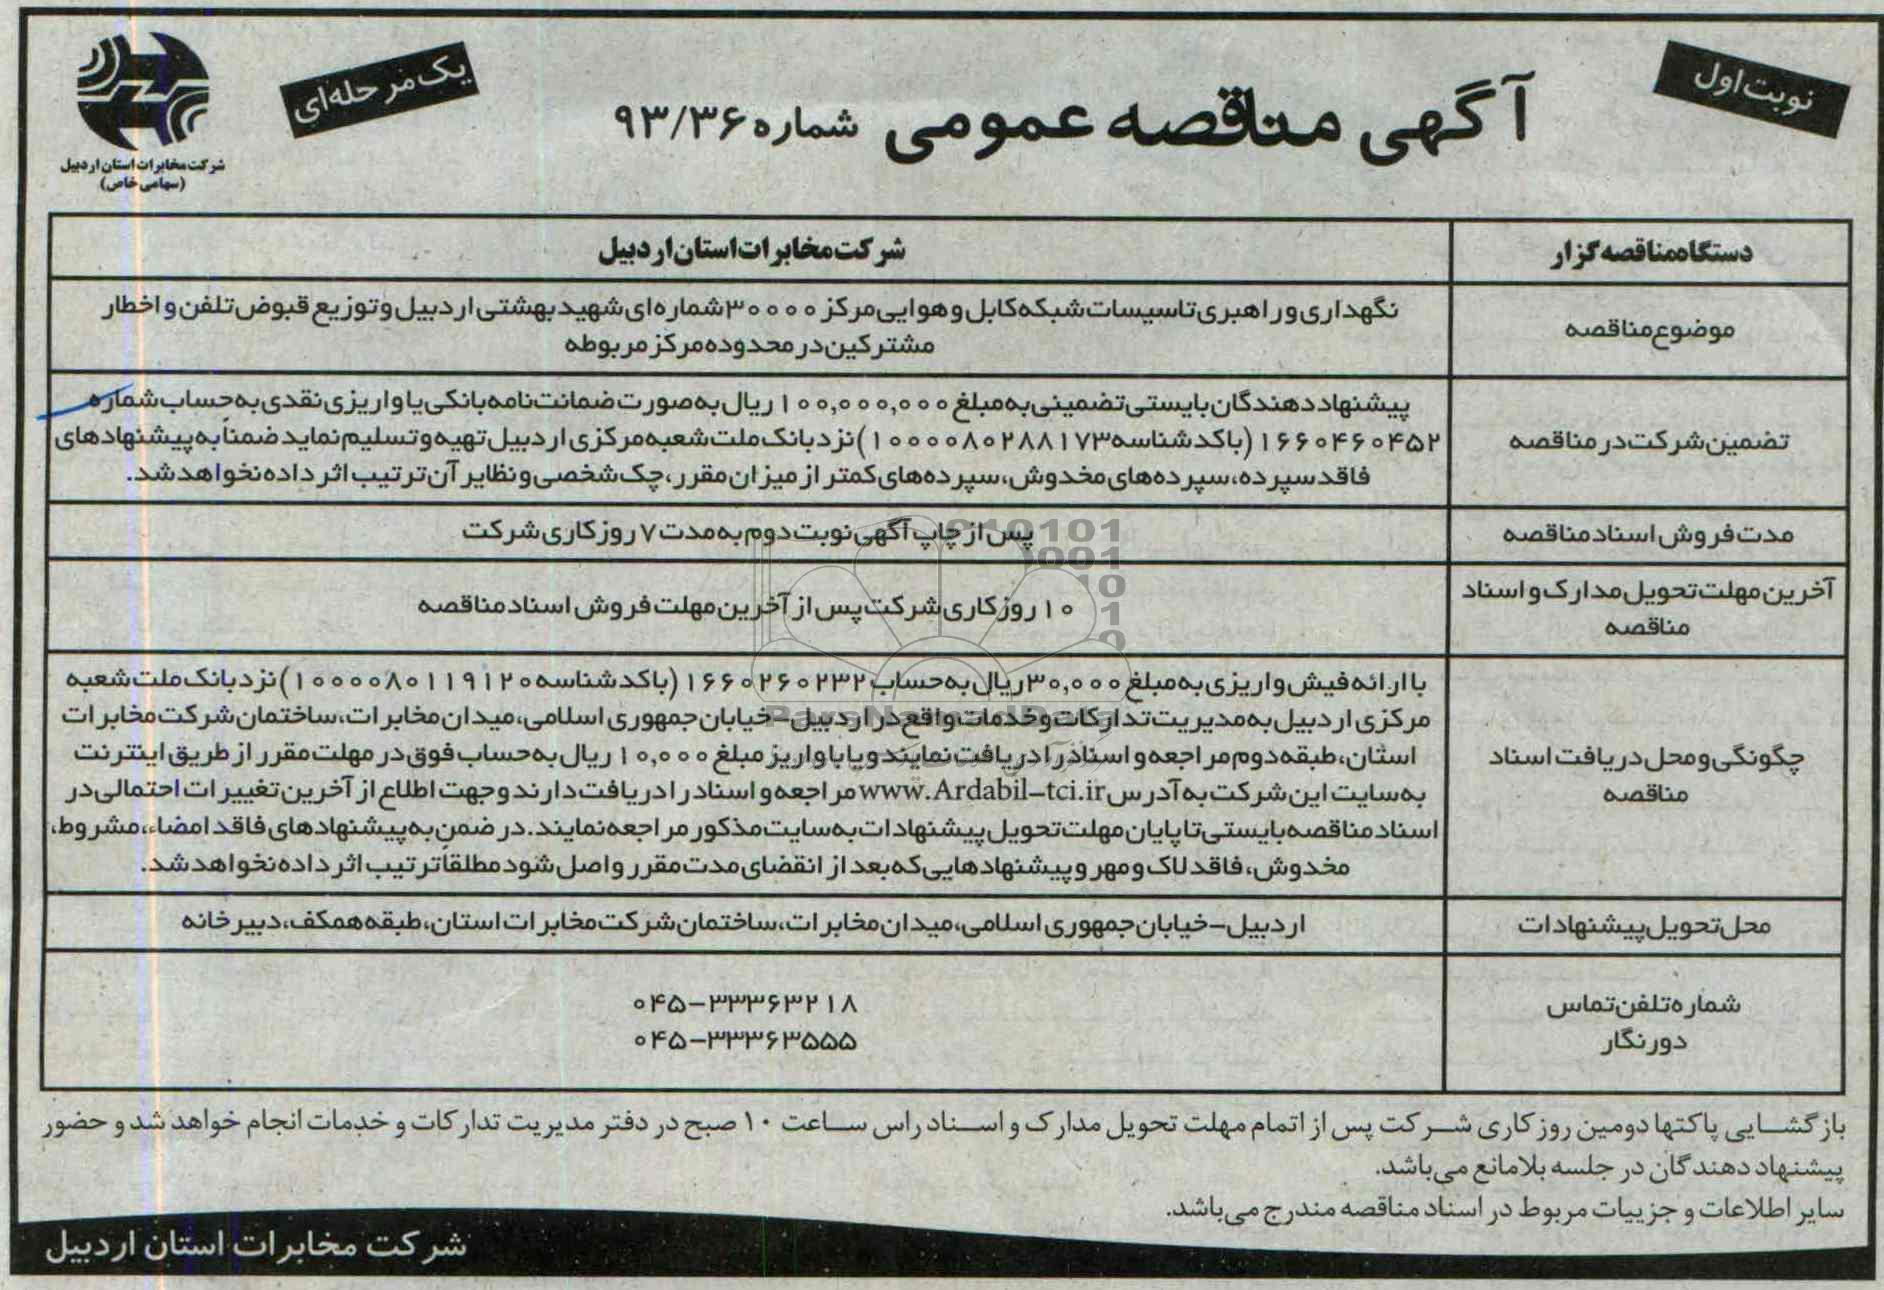 نوبت اول
آگهی مناقصه عمومی شماره ۹۳/۳۶
یک مرحله‌ای
شرکت مخابرات استان اردبیل
(سهامی خاص)
دستگاه مناقصه گزار
شرکت مخابرات استان اردبیل
موضوع مناقصه
نگهداری و راهبری تاسیسات شبکه کابل و هوایی مرکز ۳۰۰۰۰ شماره‌ای شهید بهشتی اردبیل و توزیع قبوض تلفن و اخطار
مشترکین در محدوده مرکز مربوطه
تضمین شرکت در مناقصه
پیشنهاد دهندگان بایستی تضمینی به مبلغ ۱۰۰,۰۰۰,۰۰۰ ریال به صورت ضمانت نامه بانکی یا واریزی نقدی به حساب شماره
۱۶۶۰۴۶۰۴۵۲ (با کد شناسه ۱۰۰۰۰۸۰۲۸۸۱۷۳) نزد بانک ملت شعبه مرکزی اردبیل تهیه و تسلیم نماید ضمناً به پیشنهادهای
فاقد سپرده، سپرده‌های مخدوش، سپرده‌های کمتر از میزان مقرر، چک شخصی و نظایر آن ترتیب اثر داده نخواهد شد.
مدت فروش اسناد مناقصه
پس از چاپ آگهی نوبت دوم به مدت ۷ روز کاری شرکت
آخرین مهلت تحویل مدارک و اسناد
مناقصه
۱۰ روز کاری شرکت پس از آخرین مهلت فروش اسناد مناقصه
چگونگی و محل دریافت اسناد
مناقصه
با ارائه فیش واریزی به مبلغ ۳۰,۰۰۰ ریال به حساب ۱۶۶۰۲۶۰۲۳۲ (با کد شناسه ۱۰۰۰۰۸۰۱۱۹۱۲۰) نزد بانک ملت شعبه
مرکزی اردبیل به مدیریت تدارکات و خدمات واقع در اردبیل-خیابان جمهوری اسلامی، میدان مخابرات، ساختمان شرکت مخابرات
استان، طبقه دوم مراجعه و اسناد را دریافت نمایند و یا با واریز مبلغ ۱۰,۰۰۰ ریال به حساب فوق در مهلت مقرر از طریق اینترنت
به سایت این شرکت به آدرس www.Ardabil-tci.ir مراجعه و اسناد را دریافت دارند و جهت اطلاع از آخرین تغییرات احتمالی در
اسناد مناقصه بایستی تا پایان مهلت تحویل پیشنهادات به سایت مذکور مراجعه نمایند. در ضمن به پیشنهادهای فاقد امضاء، مشروط،
مخدوش، فاقد لاک و مهر و پیشنهادهایی که بعد از انقضای مدت مقرر واصل شود مطلقاً ترتیب اثر داده نخواهد شد.
محل تحویل پیشنهادات
اردبیل-خیابان جمهوری اسلامی، میدان مخابرات، ساختمان شرکت مخابرات استان، طبقه همکف، دبیرخانه
شماره تلفن تماس
دورنگار
۰۴۵-۳۳۳۶۳۲۱۸
۰۴۵-۳۳۳۶۳۵۵۵
بازگشایی پاکتها دومین روز کاری شرکت پس از اتمام مهلت تحویل مدارک و اسناد راس ساعت ۱۰ صبح در دفتر مدیریت تدارکات و خدمات انجام خواهد شد و حضور
پیشنهاد دهندگان در جلسه بلامانع می‌باشد.
سایر اطلاعات و جزییات مربوط در اسناد مناقصه مندرج می‌باشد.
شرکت مخابرات استان اردبیل